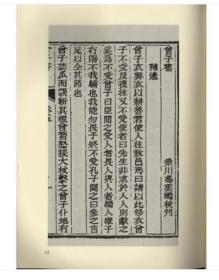 曾子書
崇川馮雲鵷校刊
補遺
曾子衣弊衣以耕魯君使人往致邑焉曰請以此修衣曾
子不受反復往又不受使者曰先生非求於人人則獻之
奚爲不受曾子曰臣聞之受人者畏人與人者驕人縱子
有賜不我驕也我能勿畏乎終不受孔子聞之曰參之言
足以全其節也
曾子芸瓜而誤斬其根曾皙怒援大杖擊之曾子仆地有